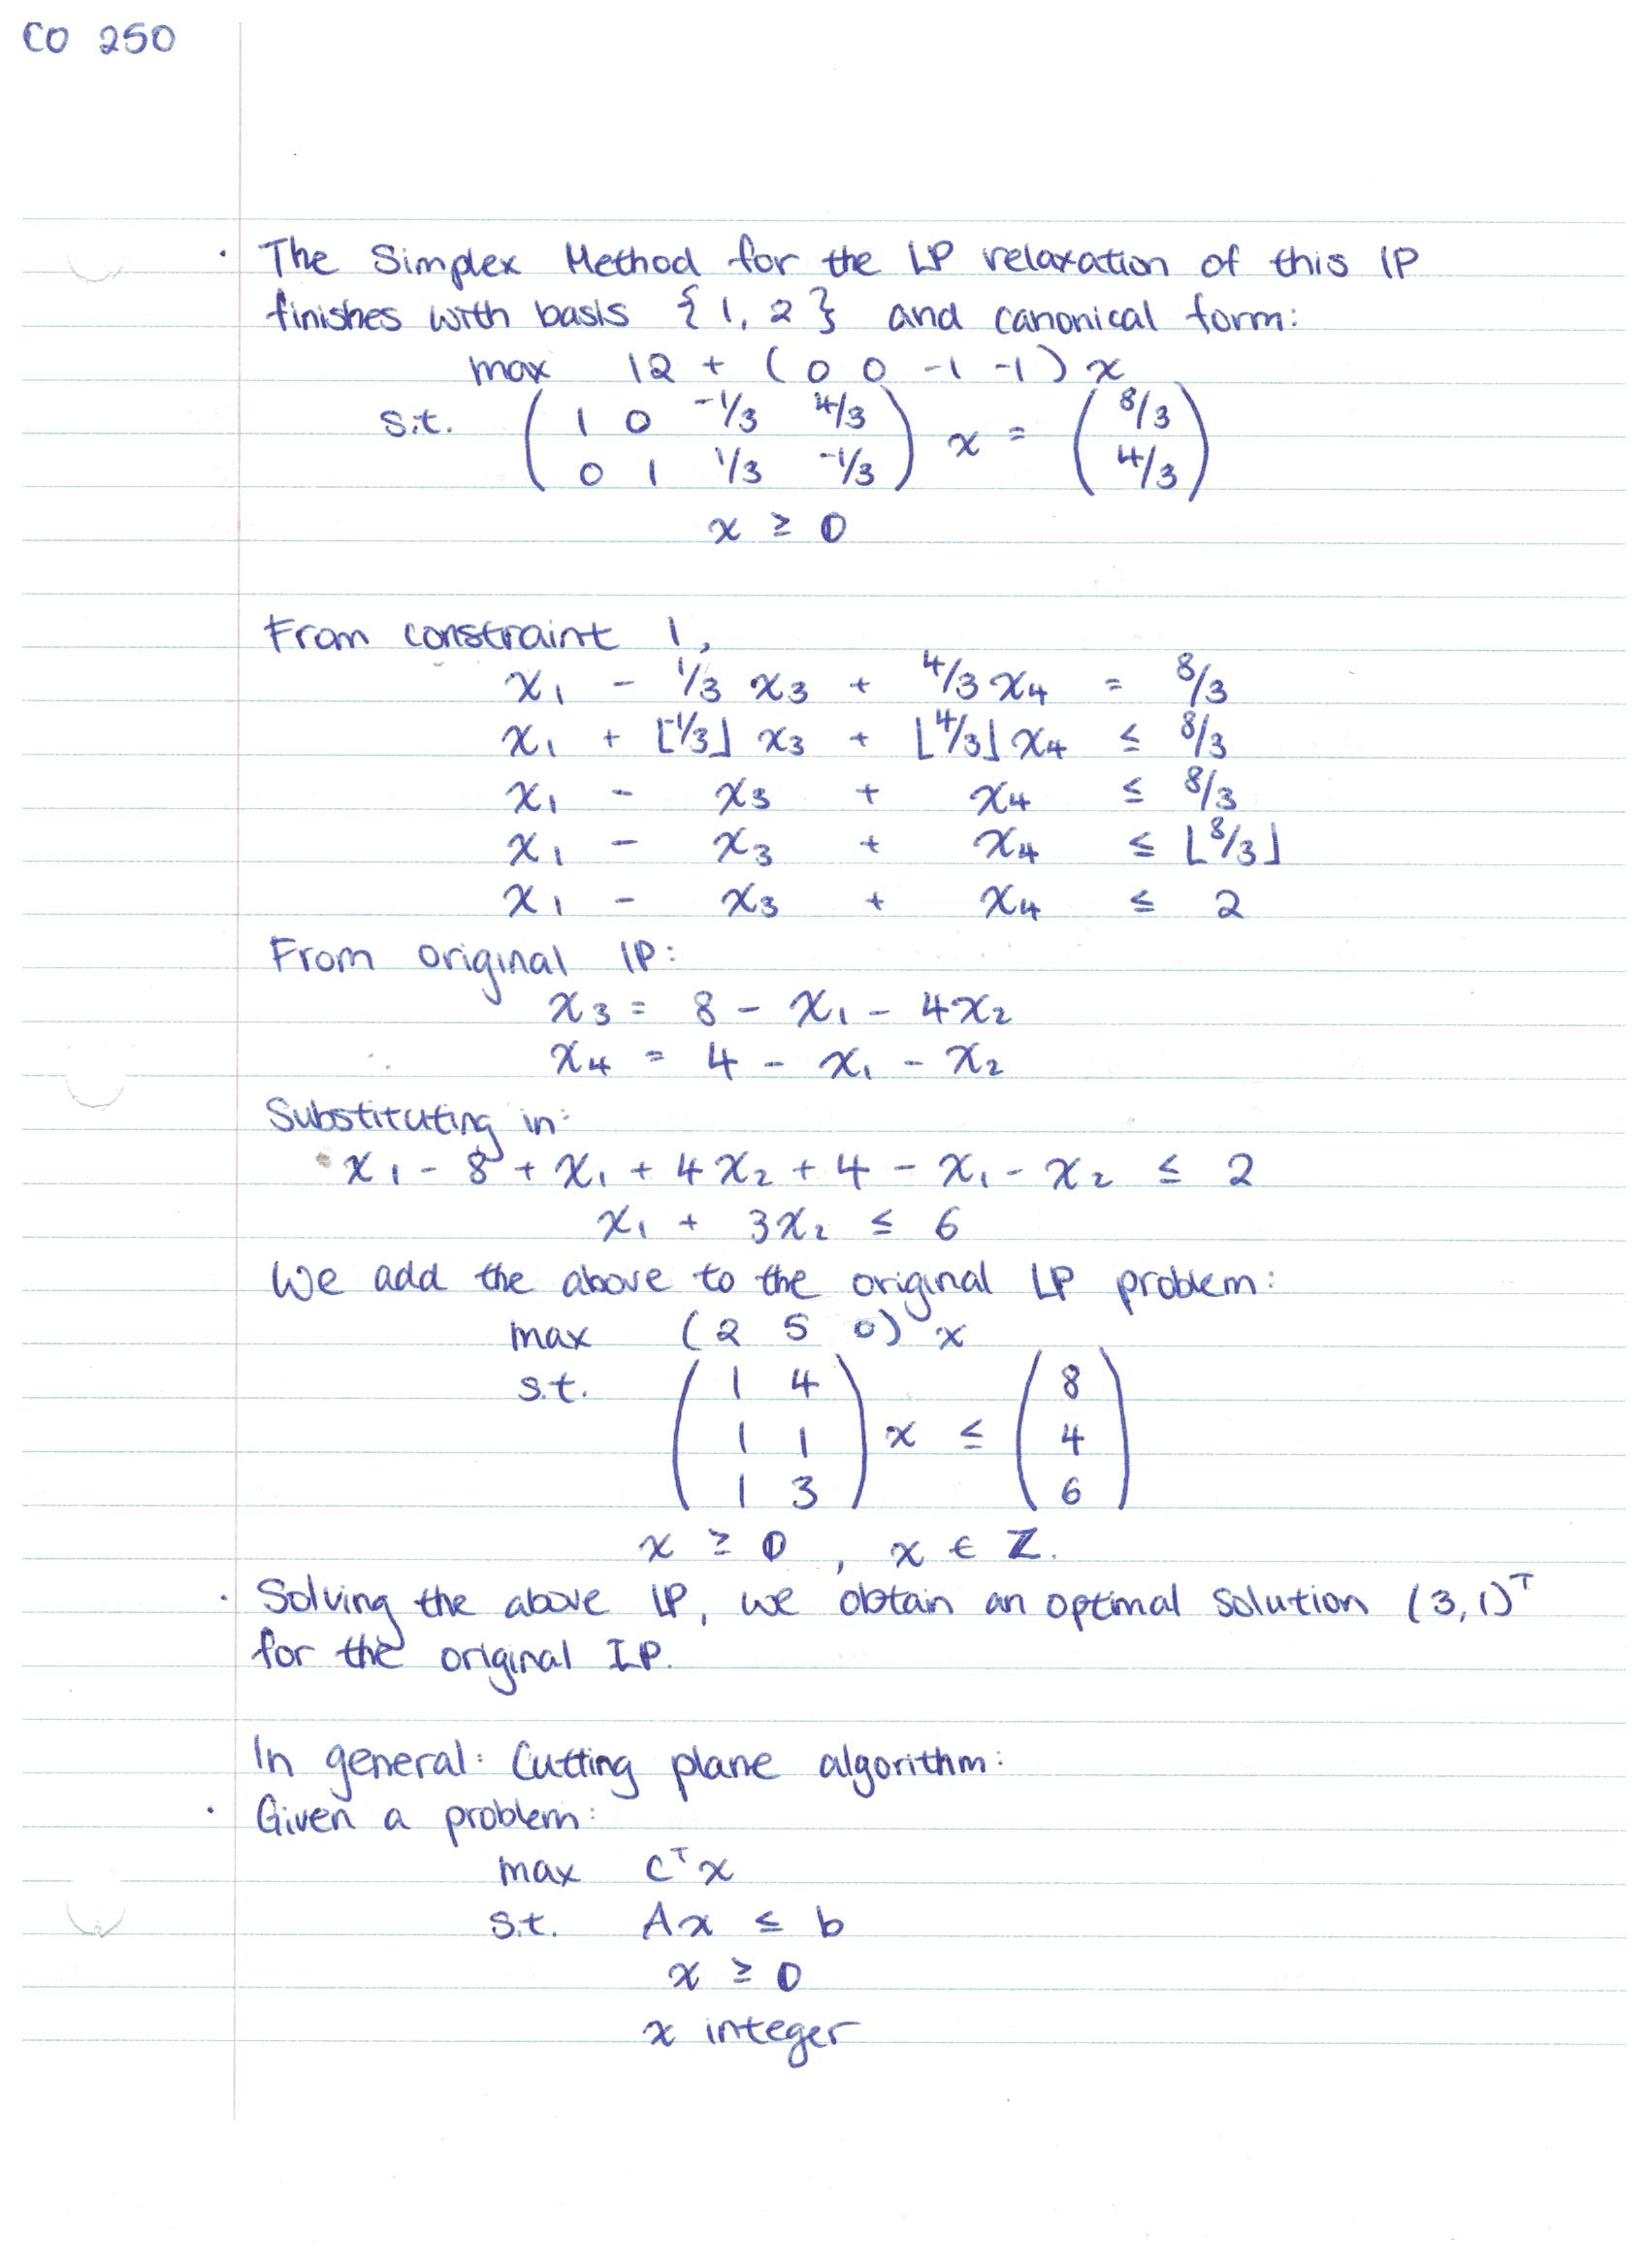 CO 250
· The Simplex Method for the LP relaxation of this IP
finishes with basis {1, 2} and canonical form:
max 12 + (0 0 -1 -1) x
s.t. ( 1 0 -1/3 4/3 ) x = ( 8/3 )
( 0 1 1/3 -1/3 ) ( 4/3 )
x ≥ 0
From constraint 1,
x₁ - 1/3 x₃ + 4/3 x₄ = 8/3
x₁ + ⌊-1/3⌋ x₃ + ⌊4/3⌋ x₄ ≤ 8/3
x₁ - x₃ + x₄ ≤ 8/3
x₁ - x₃ + x₄ ≤ ⌊8/3⌋
x₁ - x₃ + x₄ ≤ 2
From original IP:
x₃ = 8 - x₁ - 4x₂
x₄ = 4 - x₁ - x₂
Substituting in:
x₁ - 8 + x₁ + 4x₂ + 4 - x₁ - x₂ ≤ 2
x₁ + 3x₂ ≤ 6
We add the above to the original LP problem:
max (2 5 0) x
s.t. ( 1 4 ) ( 8 )
( 1 1 ) x ≤ ( 4 )
( 1 3 ) ( 6 )
x ≥ 0, x ∈ ℤ.
· Solving the above LP, we obtain an optimal solution (3,1)ᵀ
for the original IP.
In general: Cutting plane algorithm:
· Given a problem:
max cᵀx
s.t. Ax ≤ b
x ≥ 0
x integer